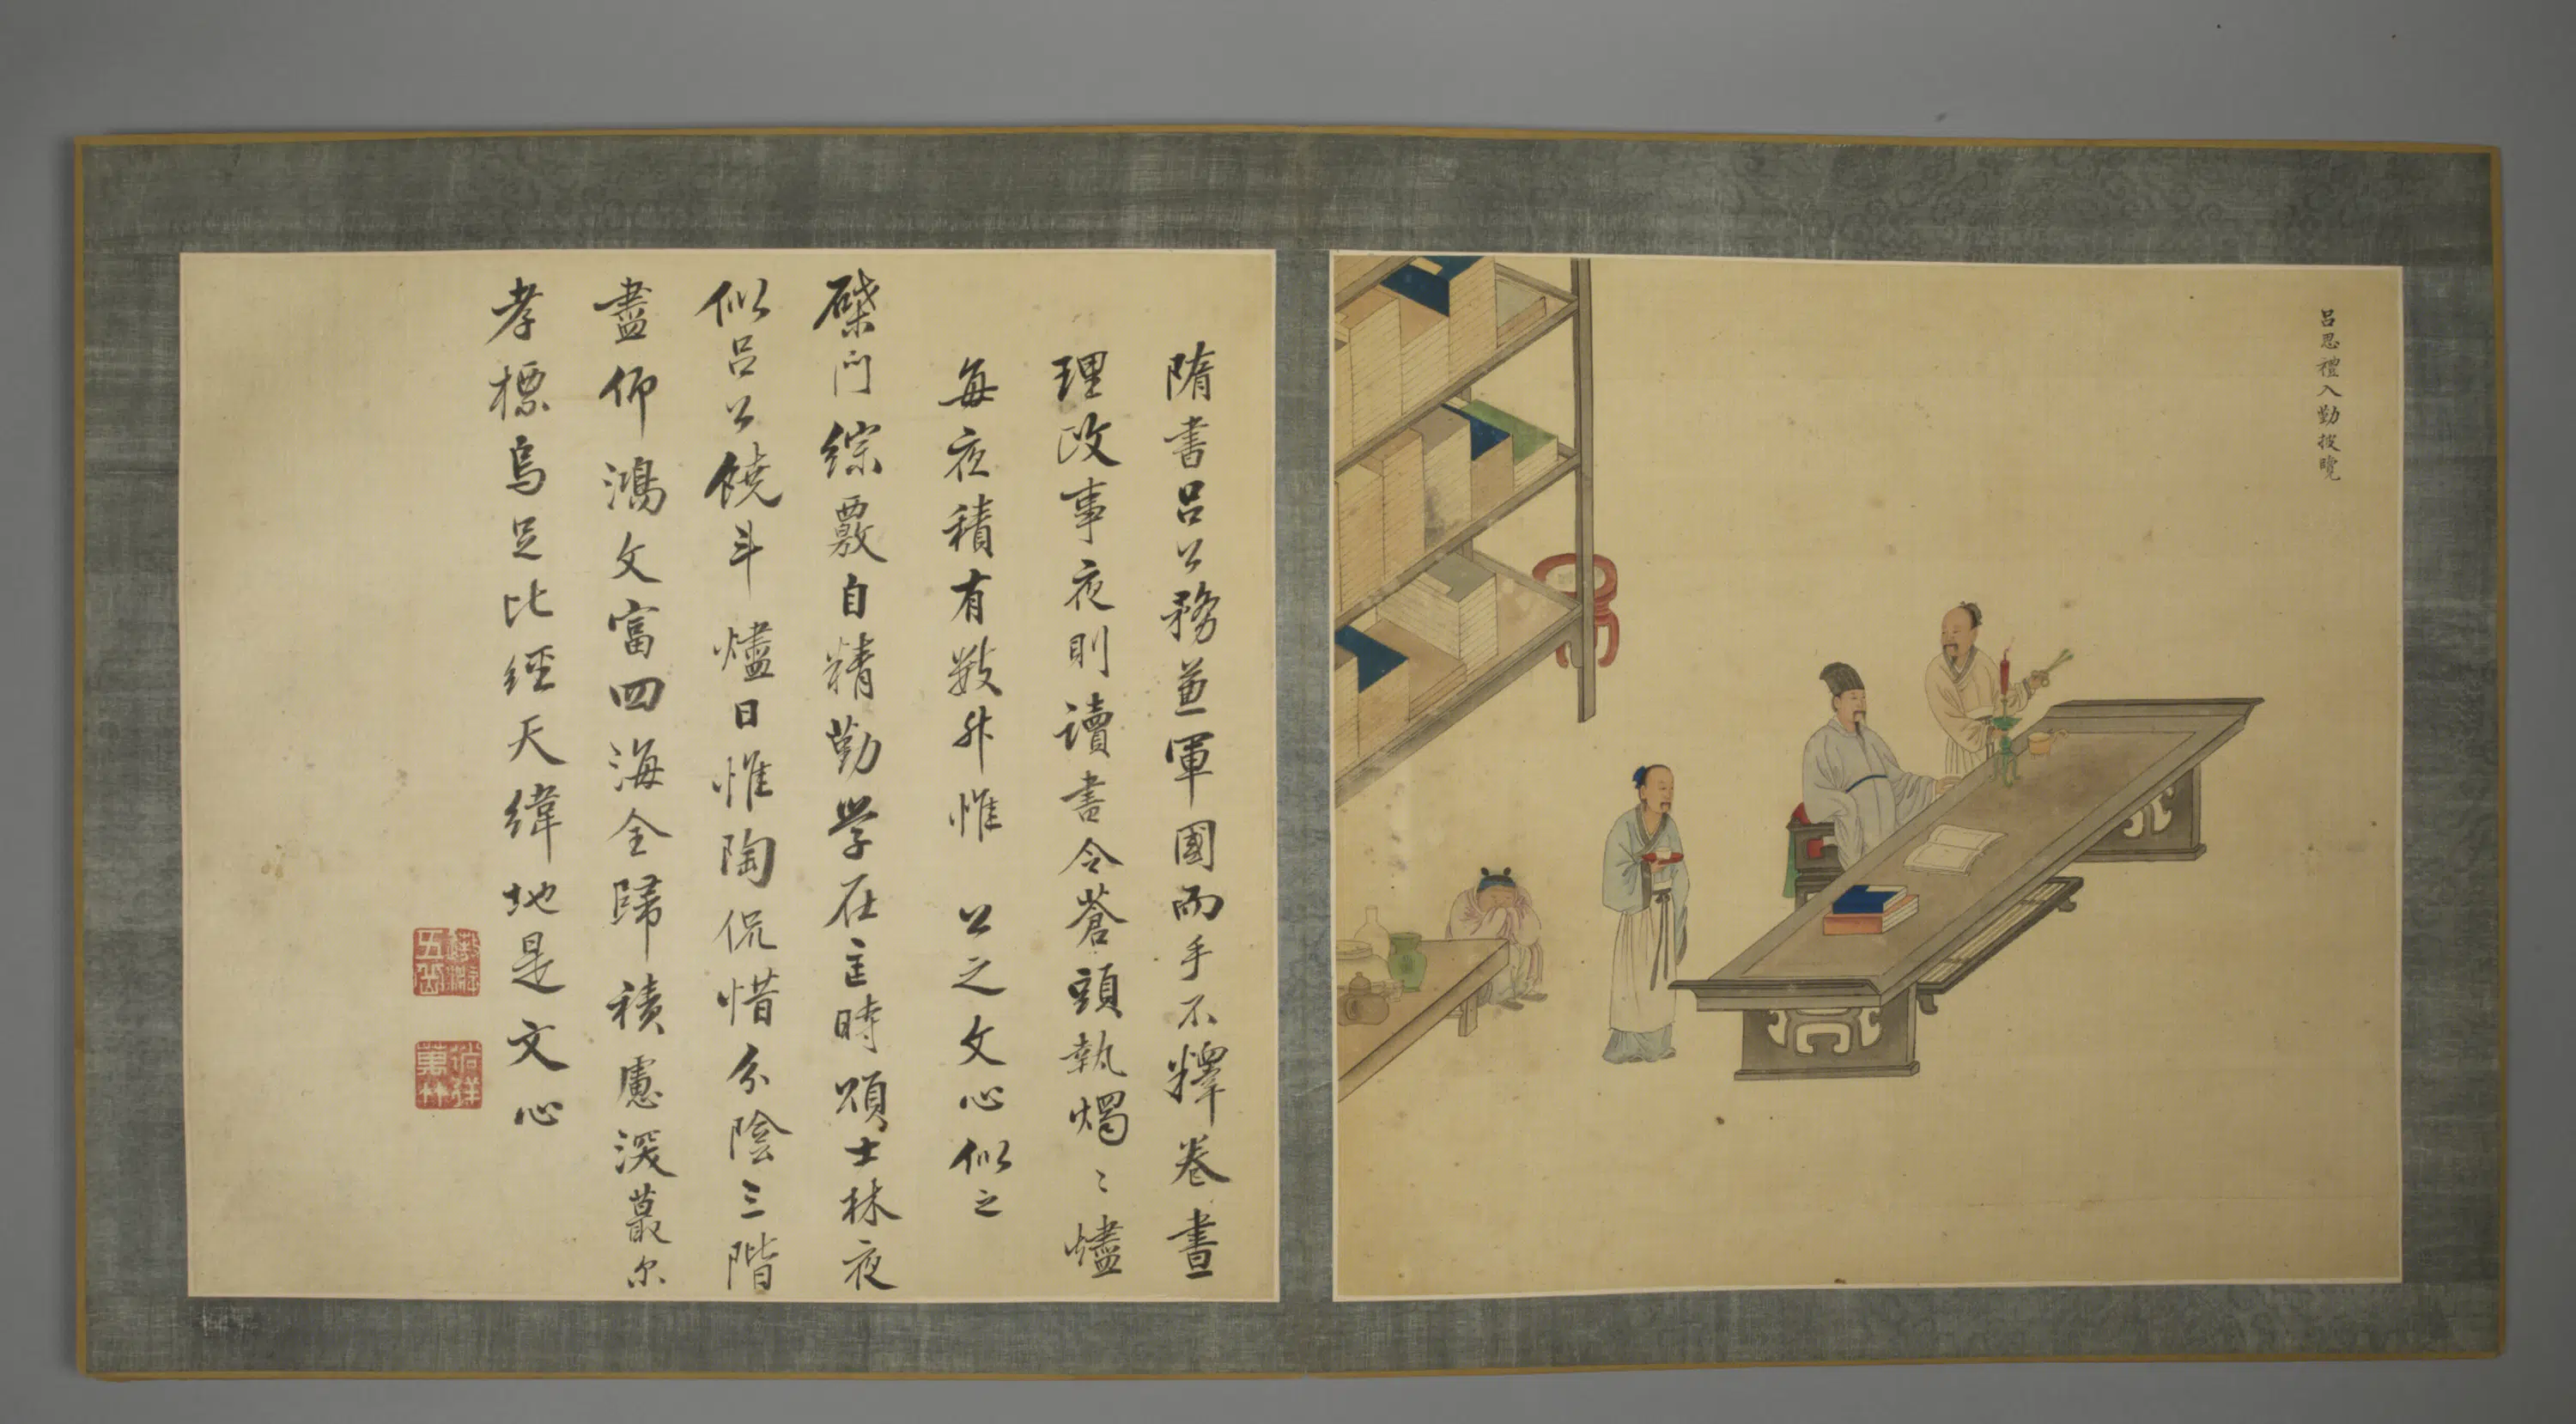 呂思禮入勤披覽
隋書呂公務兼軍國而手不釋卷晝
理政事夜則讀書令蒼頭執燭〻燼
每夜積有數升惟公之文心似之
檗門綜覈自精勤學在匡時頌士林夜
似呂公饒斗燼日惟陶侃惜分陰三階
盡仰鴻文富四海全歸積慮深蕞尔
孝標烏足比經天緯地是文心